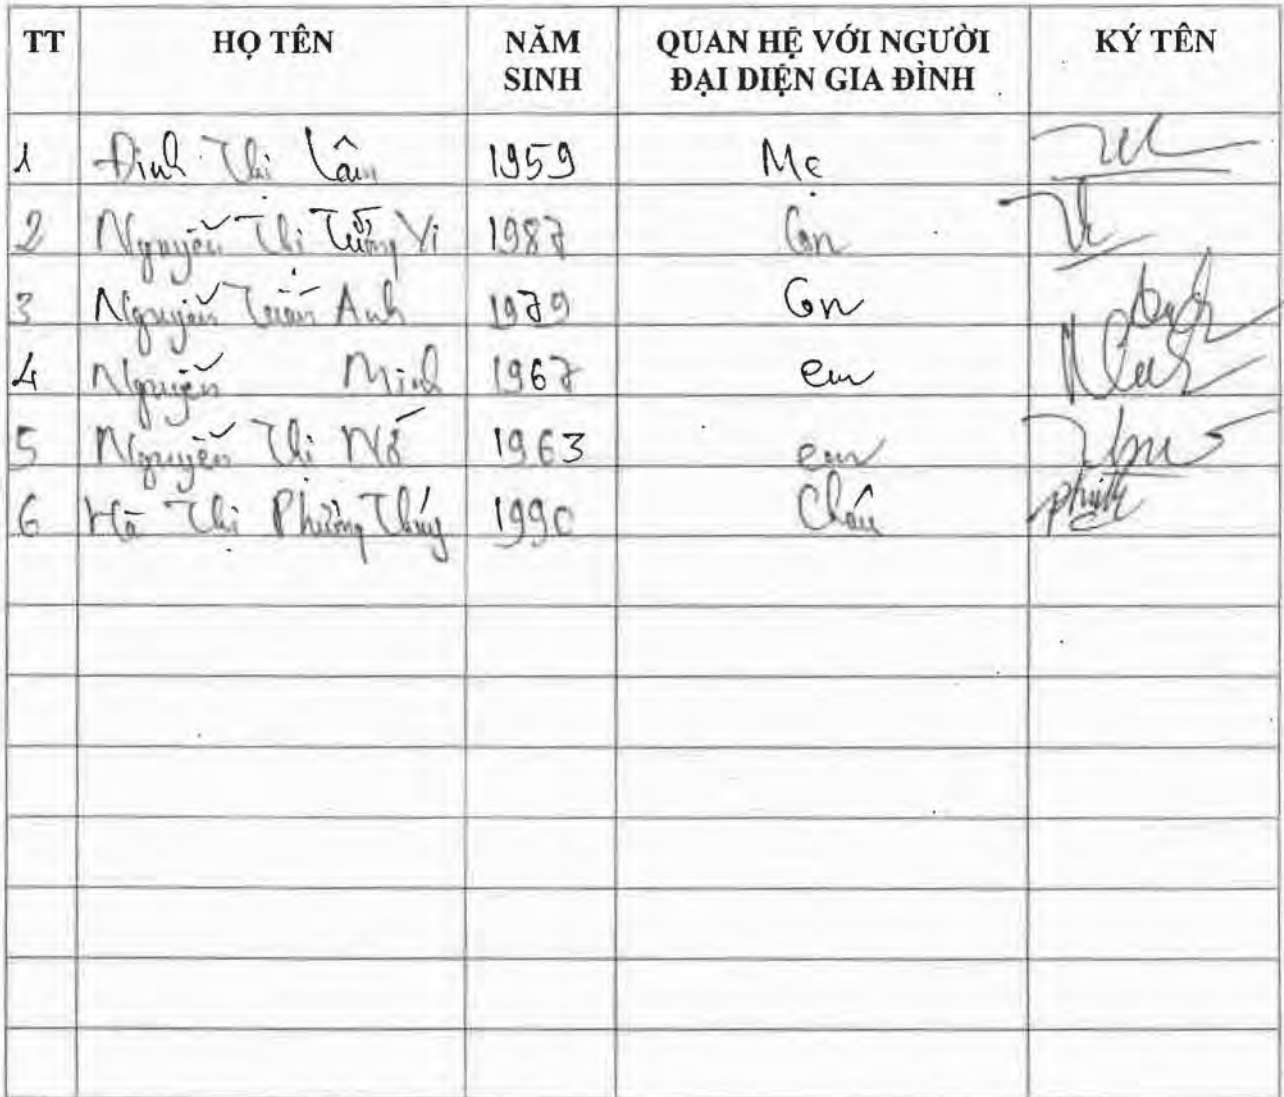 TT HỌ TÊN NĂM SINH QUAN HỆ VỚI NGƯỜI ĐẠI DIỆN GIA ĐÌNH KÝ TÊN
1 Đinh Thị Lâm 1959 Mẹ
2 Nguyễn Thị Tường Vi 1987 Con
3 Nguyễn Tuấn Anh 1979 Con
4 Nguyễn Minh 1967 em
5 Nguyễn Thị Nở 1963 em
6 Hà Thị Phương Thúy 1990 Cháu